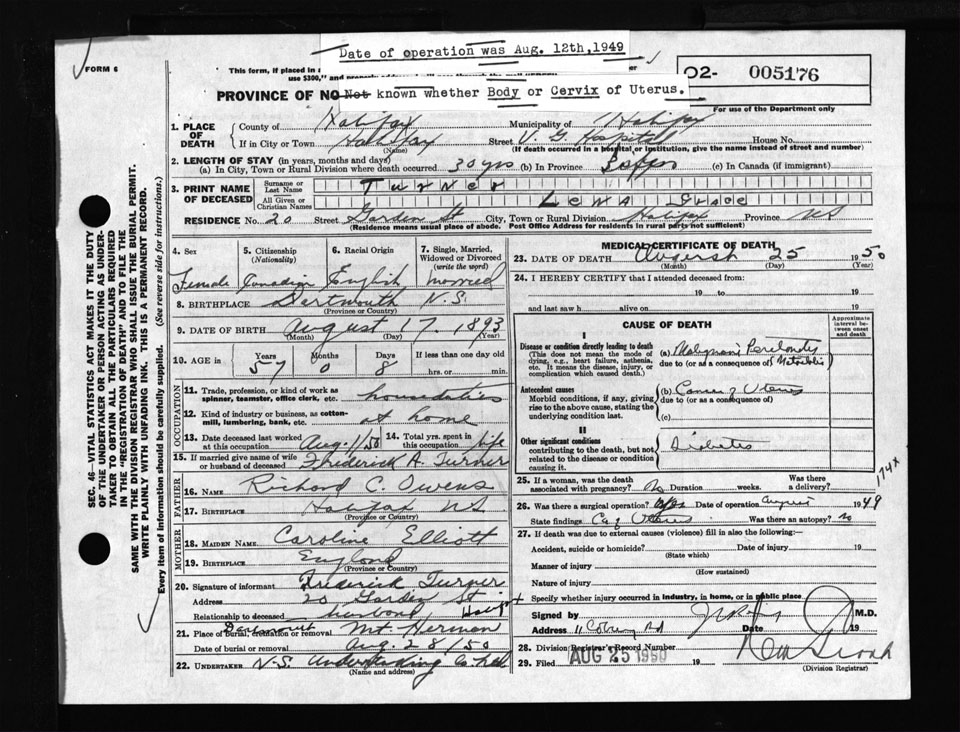 Date of operation was Aug. 12th, 1949
FORM 6
This form, if placed in
use $300," and
O2- 005176
PROVINCE OF NO
Not known whether Body or Cervix of Uterus.
For use of the Department only
1. PLACE OF DEATH
County of Halifax Municipality of Halifax
If in City or Town Halifax Street V. G. Hospital House No.
(Name) (If death occurred in a hospital or institution, give the name instead of street and number)
2. LENGTH OF STAY (in years, months and days)
(a) In City, Town or Rural Division where death occurred 30 yrs (b) In Province (c) In Canada (if immigrant)
3. PRINT NAME OF DECEASED
Surname or Last Name Turner
All Given or Christian Names Lena Grace
RESIDENCE No. 20 Street Garden St City, Town or Rural Division Halifax Province NS
(Residence means usual place of abode. Post Office Address for residents in rural parts not sufficient)
4. Sex Female
5. Citizenship (Nationality) Canadian
6. Racial Origin English
7. Single, Married, Widowed or Divorced (write the word) married
8. BIRTHPLACE Dartmouth N.S.
(Province or Country)
9. DATE OF BIRTH August 17, 1893
(Month) (Day) (Years)
10. AGE in Years 57 Months 0 Days 8 If less than one day old
hrs. or min.
OCCUPATION
11. Trade, profession, or kind of work as spinner, teamster, office clerk, etc. houseduties
12. Kind of industry or business, as cotton-mill, lumbering, bank, etc. at home
13. Date deceased last worked at this occupation Aug. 1/50
14. Total yrs. spent in this occupation life
15. If married give name of wife or husband of deceased Frederick A. Turner
FATHER
16. NAME Richard C. Owens
17. BIRTHPLACE Halifax NS
(Province or Country)
MOTHER
18. MAIDEN NAME Caroline Elliott
19. BIRTHPLACE England
(Province or Country)
20. Signature of informant Frederick Turner
Address 20 Garden St
Relationship to deceased husband
21. Place of burial, cremation or removal Dartmouth Mt. Hermon
Date of burial or removal Aug. 28/50
22. UNDERTAKER N.S. Undertaking Co. Ltd.
(Name and address)
MEDICAL CERTIFICATE OF DEATH
23. DATE OF DEATH August 25 1950
(Month) (Day) (Year)
24. I HEREBY CERTIFY that I attended deceased from:
19 to 19
and last saw h alive on 19
CAUSE OF DEATH
Approximate interval between onset and death
I
Disease or condition directly leading to death
(This does not mean the mode of dying, e.g., heart failure, asthenia, etc. It means the disease, injury, or complication which caused death.)
(a)
due to (or as a consequence of)
Antecedent causes
Morbid conditions, if any, giving rise to the above cause, stating the underlying condition last.
(b) Cancer of Uterus
due to (or as a consequence of)
(c)
II
Other significant conditions
contributing to the death, but not related to the disease or condition causing it.
Diabetes
174x
25. If a woman, was the death associated with pregnancy? No Duration weeks. Was there a delivery?
26. Was there a surgical operation? Yes Date of operation August 1949
State findings Ca of Uterus Was there an autopsy? No
27. If death was due to external causes (violence) fill in also the following:—
Accident, suicide or homicide? Date of injury 19
(State which)
Manner of injury
(How sustained)
Nature of injury
Specify whether injury occurred in industry, in home, or in public place
Signed by M.D.
Address 11 Coburg Rd Date 19
28. Division Registrar's Record Number
29. Filed AUG 25 1950 19
(Division Registrar)
SEC. 46—VITAL STATISTICS ACT MAKES IT THE DUTY
OF THE UNDERTAKER OR PERSON ACTING AS UNDER-
TAKER TO OBTAIN ALL THE PARTICULARS REQUIRED
IN THE "REGISTRATION OF DEATH" AND TO FILE THE
SAME WITH THE DIVISION REGISTRAR WHO SHALL ISSUE THE BURIAL PERMIT.
WRITE PLAINLY WITH UNFADING INK. THIS IS A PERMANENT RECORD.
Every item of information should be carefully supplied. (See reverse side for instructions.)